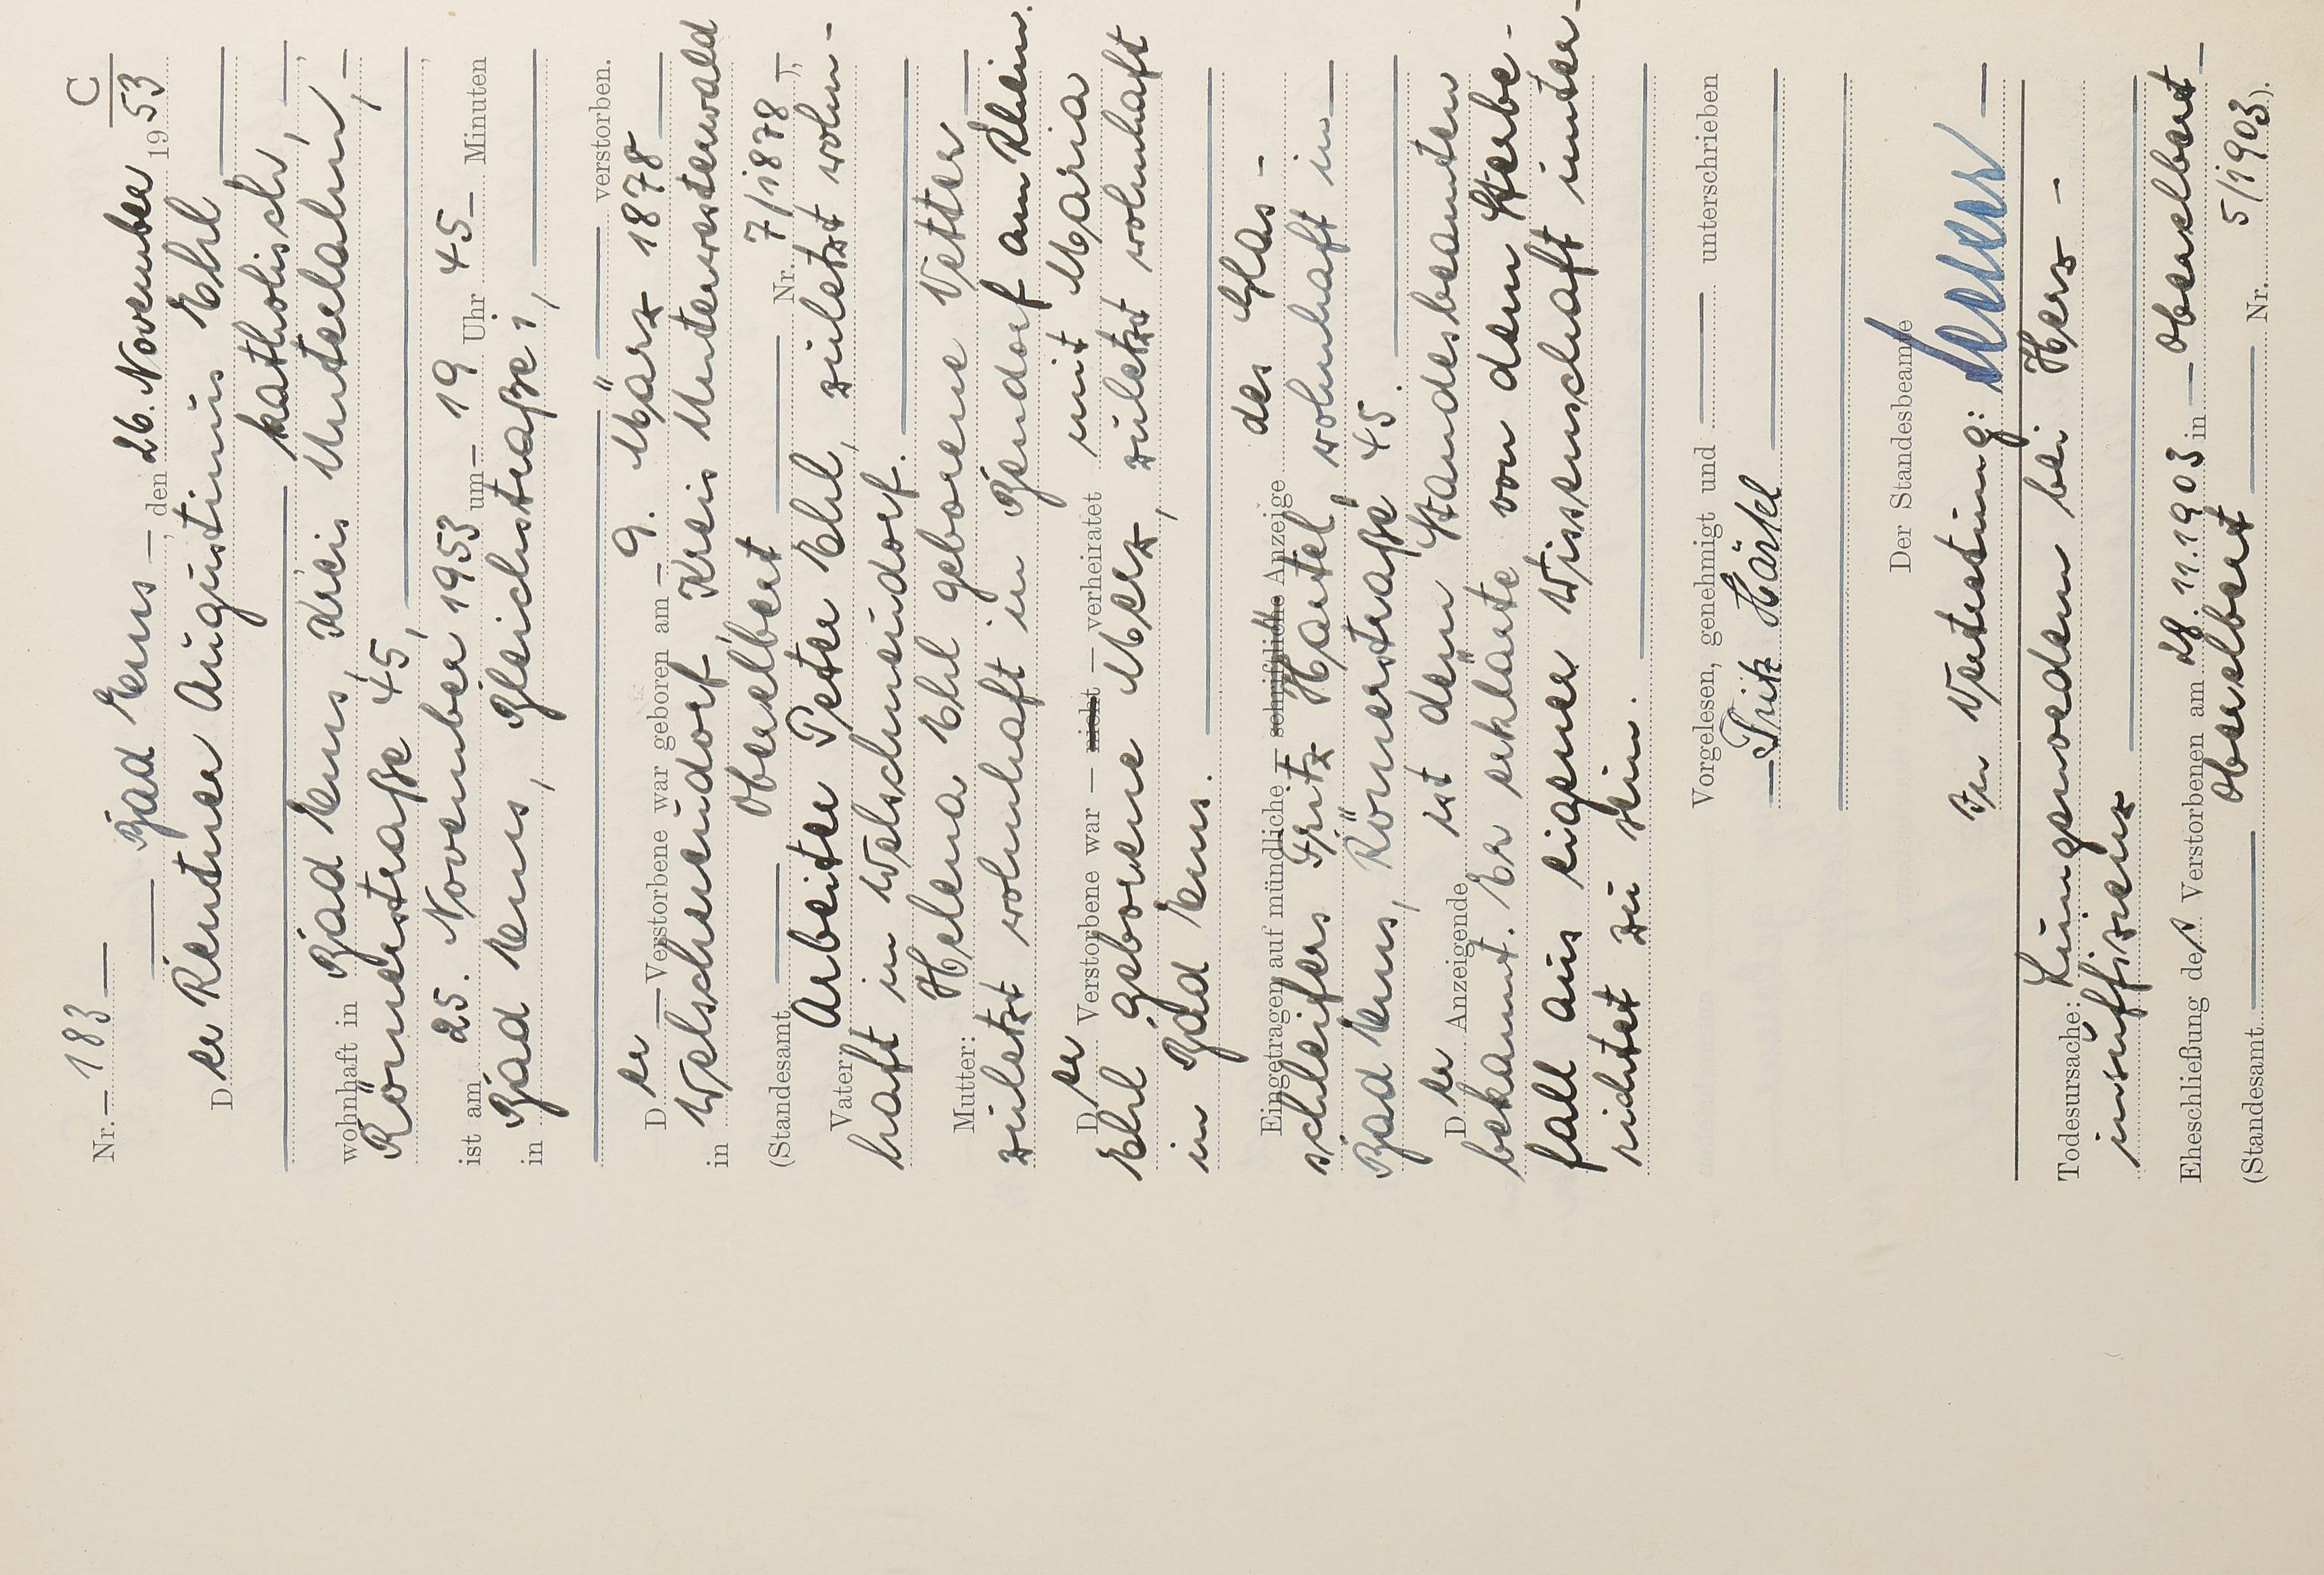 C
Nr. 183
Bad Ems, den 26. November 1953
Der Rentner Augustinus Ehl
katholisch,
wohnhaft in Bad Ems, Kreis Unterlahn,
Römerstraße 45,
ist am 25. November 1953 um 19 Uhr 45 Minuten
in Bad Ems, Bleichstraße 1,
verstorben.
Der Verstorbene war geboren am 9. März 1878
in Welschneudorf, Kreis Unterwesterwald
(Standesamt Oberelbert Nr. 7/1878),
Vater: Arbeiter Peter Ehl, zuletzt wohn-
haft in Welschneudorf.
Mutter: Helena Ehl geborene Vetter
zuletzt wohnhaft in Bendorf am Rhein.
Der Verstorbene war — nicht — verheiratet mit Maria
Ehl geborene Merz, zuletzt wohnhaft
in Bad Ems.
Eingetragen auf mündliche — schriftliche Anzeige des Glas-
schleifers Fritz Härtel, wohnhaft in
Bad Ems, Römerstraße 45.
Der Anzeigende ist dem Standesbeamten
bekannt. Er erklärte von dem Sterbe-
fall aus eigener Wissenschaft unter-
richtet zu sein.
Vorgelesen, genehmigt und unterschrieben
Fritz Härtel
Der Standesbeamte
In Vertretung:
Todesursache: Lungenoedem bei Herz-
insuffizienz
Eheschließung des Verstorbenen am 28.11.1903 in Oberelbert
(Standesamt Oberelbert Nr. 5/1903).